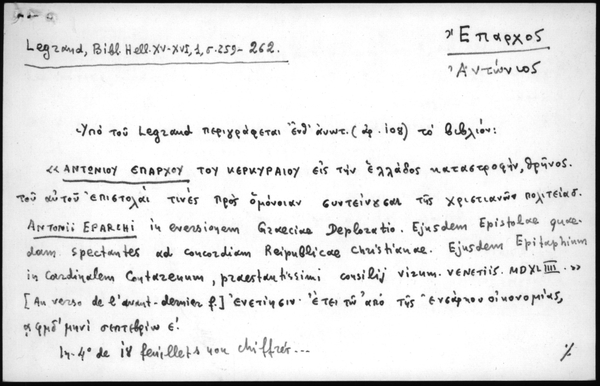 Legrand, Bibl. Hell. XV-XVI, 1, σ. 259-262.
Ἔπαρχος
Ἀντώνιος
Ὑπὸ τοῦ Legrand περιγράφεται ἔνθ' ἀνωτ. (ἀρ. 108) τὸ βιβλίον:
«ΑΝΤΩΝΙΟΥ ΕΠΑΡΧΟΥ ΤΟΥ ΚΕΡΚΥΡΑΙΟΥ εἰς τὴν Ἑλλάδος καταστροφήν, θρῆνος.
τοῦ αὐτοῦ ἐπιστολαί τινὲς πρὸς ὁμόνοιαν συντείνουσαι τῆς χριστιανῶν πολιτείας.
ANTONII EPARCHI in eversionem Graeciae Deploratio. Ejusdem Epistolae quae-
dam spectantes ad concordiam Reipublicae Christianae. Ejusdem Epitaphium
in Cardinalem Contarenum, praestantissimi consilij virum. VENETIIS. MDXLIIII. »
[Au verso de l'avant-dernier f.] Ἐνετίησιν. ἔτει τῶ ἀπὸ τῆς ἐνσάρκου οἰκονομίας,
αφμδ' μηνὶ σεπτεβρίω ε!
In-4° de 18 feuillets non chiffrés...